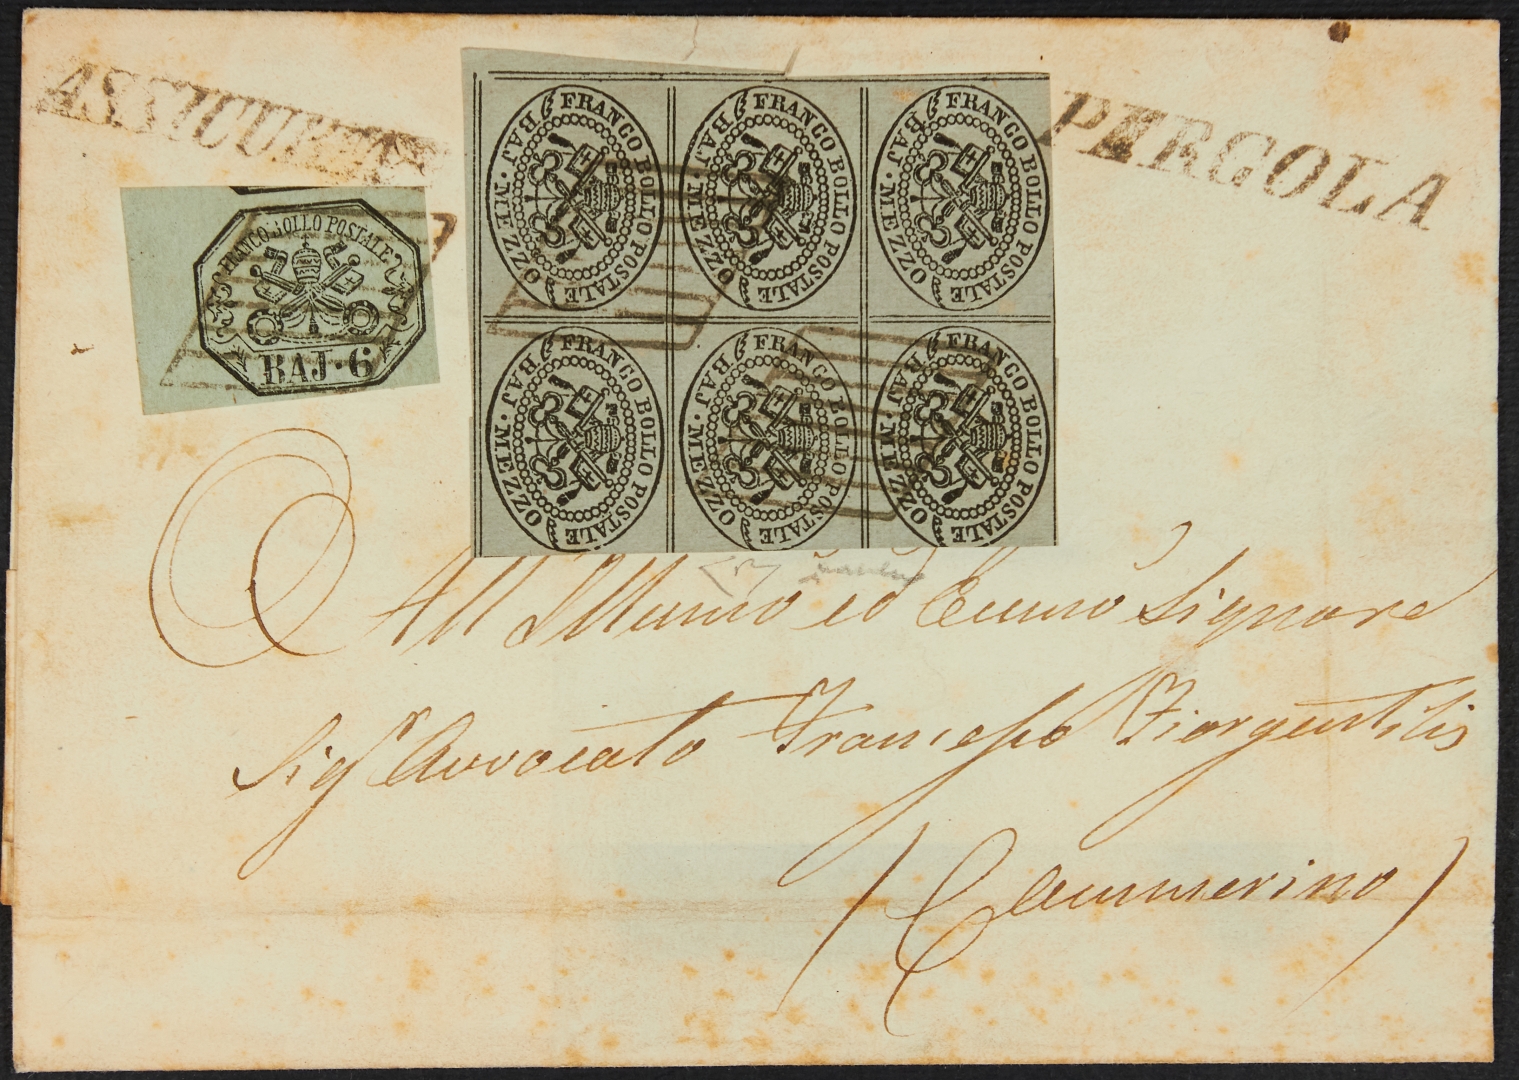 ASSICURATA
PERGOLA
FRANCO BOLLO POSTALE
BAJ·6
FRANCO BOLLO POSTALE
MEZZO BAJ
FRANCO BOLLO POSTALE
MEZZO BAJ
FRANCO BOLLO POSTALE
MEZZO BAJ
FRANCO BOLLO POSTALE
MEZZO BAJ
FRANCO BOLLO POSTALE
MEZZO BAJ
FRANCO BOLLO POSTALE
MEZZO BAJ
All Illumo ed Eccmo Signore
Sigr Avvocato Francesco Fiorgentilis
(Cammerino)